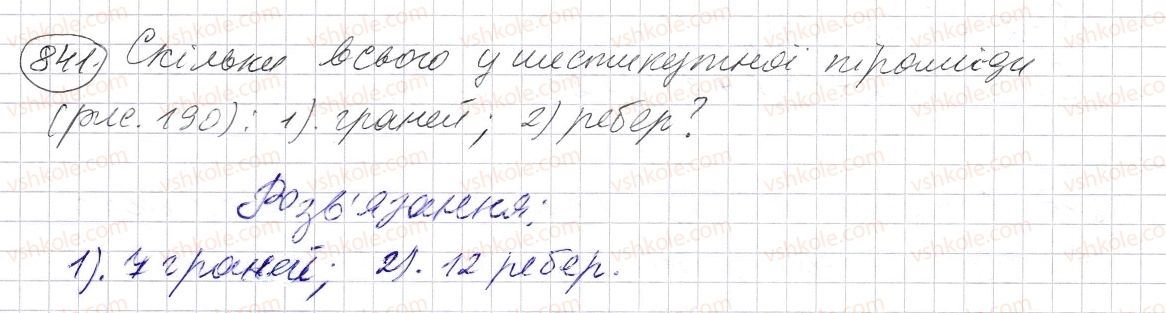 841. Скільки всього у шестикутної піраміди
(рис. 190): 1). граней; 2) ребер?
Розв'язання:
1). 7 граней; 2). 12 ребер.